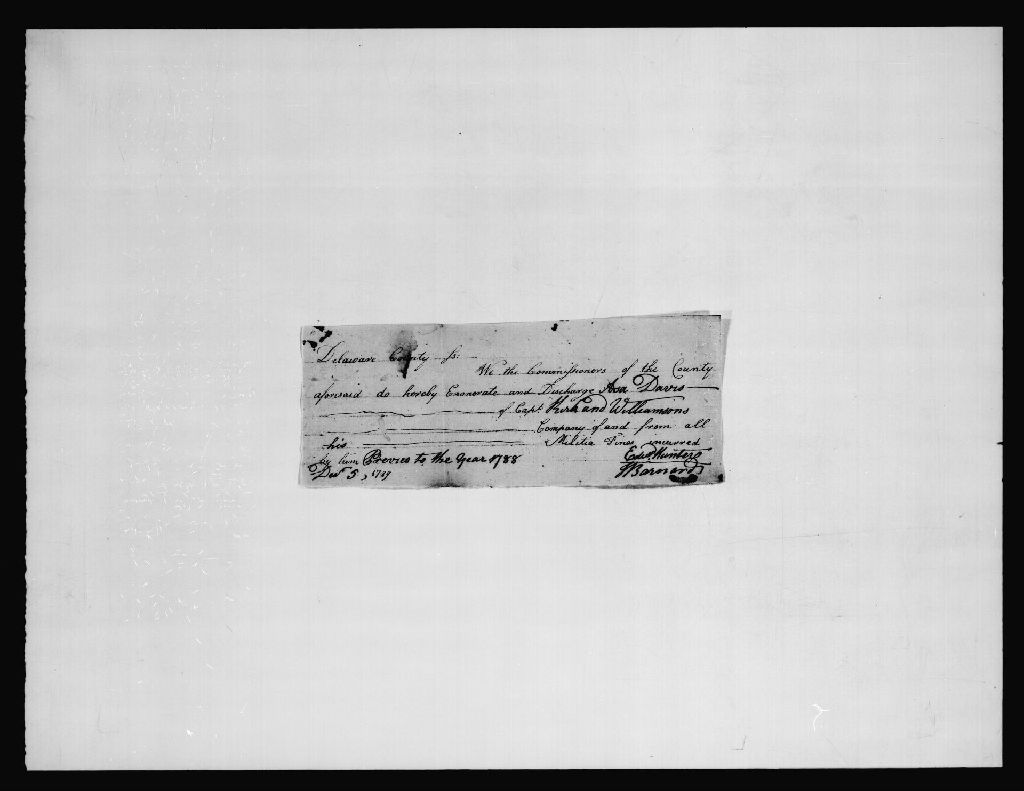 Delaware County Ss:
We the Commissioners of the County
aforesaid do hereby Exonerate and Discharge Asa Davis
of Capt. and Williamsons
Company of and from all
his Militia Fines incurred
by him Previes to the Year 1788
Decr 5, 1789
Barnard